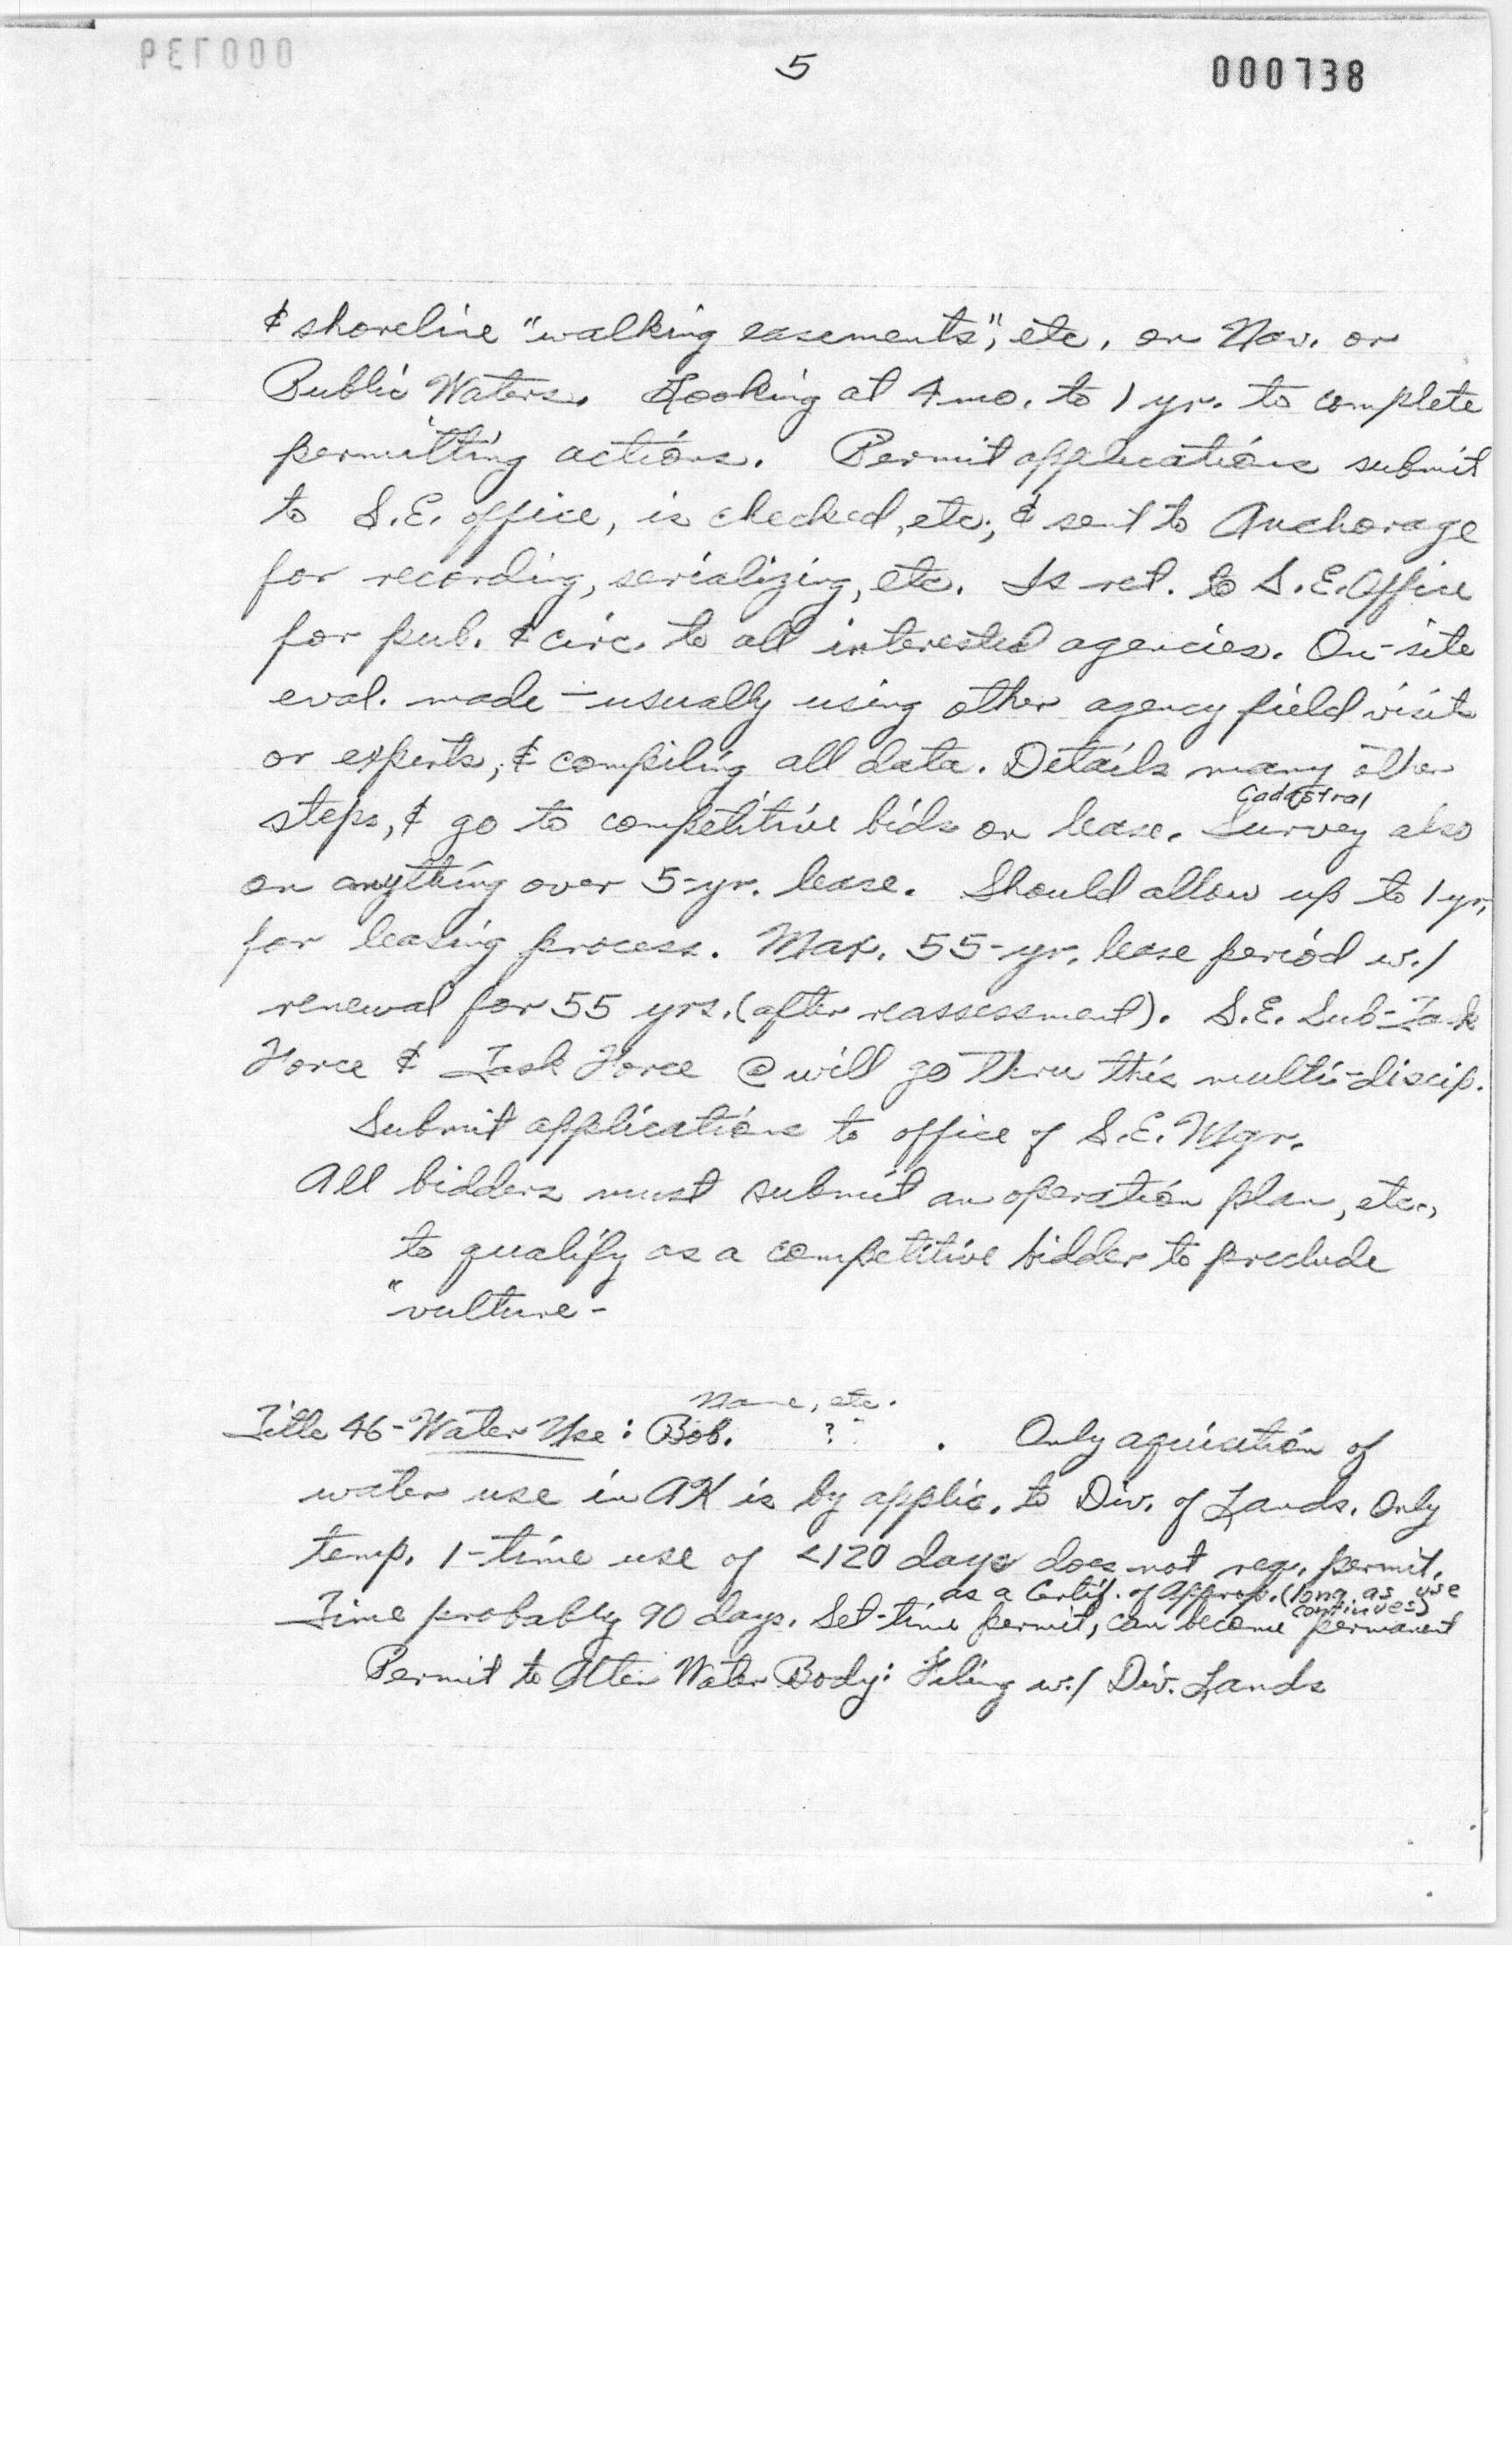 5
000738
& shoreline "walking easements", etc. on Nav. or
Public Waters. Looking at 4 mo. to 1 yr. to complete
permitting actions. Permit applications submit
to S.E. office, is checked, etc., & sent to Anchorage
for recording, serializing, etc. Is ret. to S.E. Office
for pub. & circ. to all interested agencies. On-site
eval. made - usually using other agency field visits
or experts, & compiling all data. Details many other
Cadastral
steps, & go to competitive bids on lease. Survey also
on anything over 5-yr. lease. Should allow up to 1 yr.
for leasing process. Max. 55-yr. lease period w./
renewal for 55 yrs. (after reassessment). S.E. Sub-Task
Force & Task Force @ will go thru this multi-discip.
Submit applications to office of S.E. Mgr.
All bidders must submit an operation plan, etc.,
to qualify as a competitive bidder to preclude
"vulture-
Name, etc.
Title 46-Water Use: Bob. ? . Only aquisition of
water use in AK is by applic. to Div. of Lands. Only
temp. 1-time use of <120 days does not req. permit.
as a Certif. of Approp. (long as use
continues)
Time probably 90 days. Set-time permit, can become permanent
Permit to Alter Water Body: Filing w./ Div. Lands